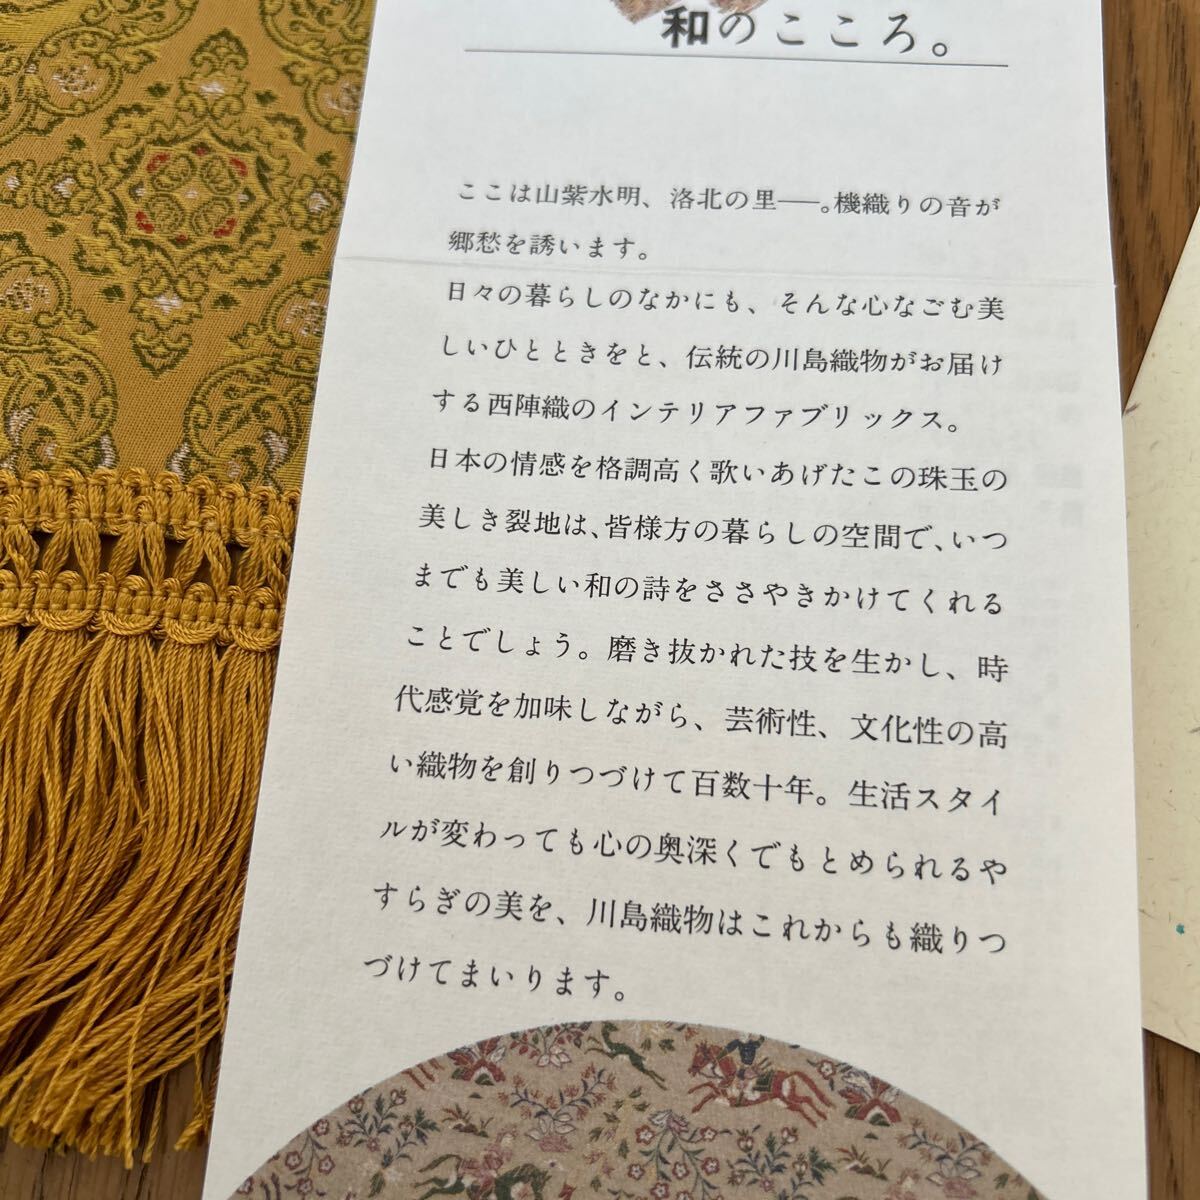 和のこころ。
ここは山紫水明、洛北の里──。機織りの音が
郷愁を誘います。
日々の暮らしのなかにも、そんな心なごむ美
しいひとときをと、伝統の川島織物がお届け
する西陣織のインテリアファブリックス。
日本の情感を格調高く歌いあげたこの珠玉の
美しき裂地は、皆様方の暮らしの空間で、いつ
までも美しい和の詩をささやきかけてくれる
ことでしょう。磨き抜かれた技を生かし、時
代感覚を加味しながら、芸術性、文化性の高
い織物を創りつづけて百数十年。生活スタイ
ルが変わっても心の奥深くでもとめられるや
すらぎの美を、川島織物はこれからも織りつ
づけてまいります。